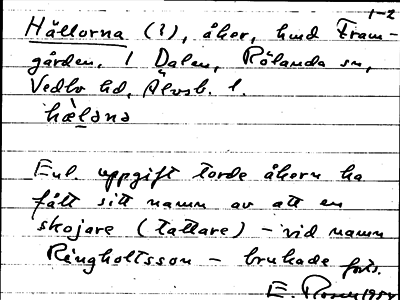 1-2
Hållorna (?), åker, hmd Fram-
gården, 1 Dalen, Rölanda sn,
Vedbo hd, Älvsb. l.
hæ̀ləna
Enl. uppgift torde åkern ha
fått sitt namn av att en
skojare (tattare) - vid namn
Ringholtsson - brukade forts.
E. 1954